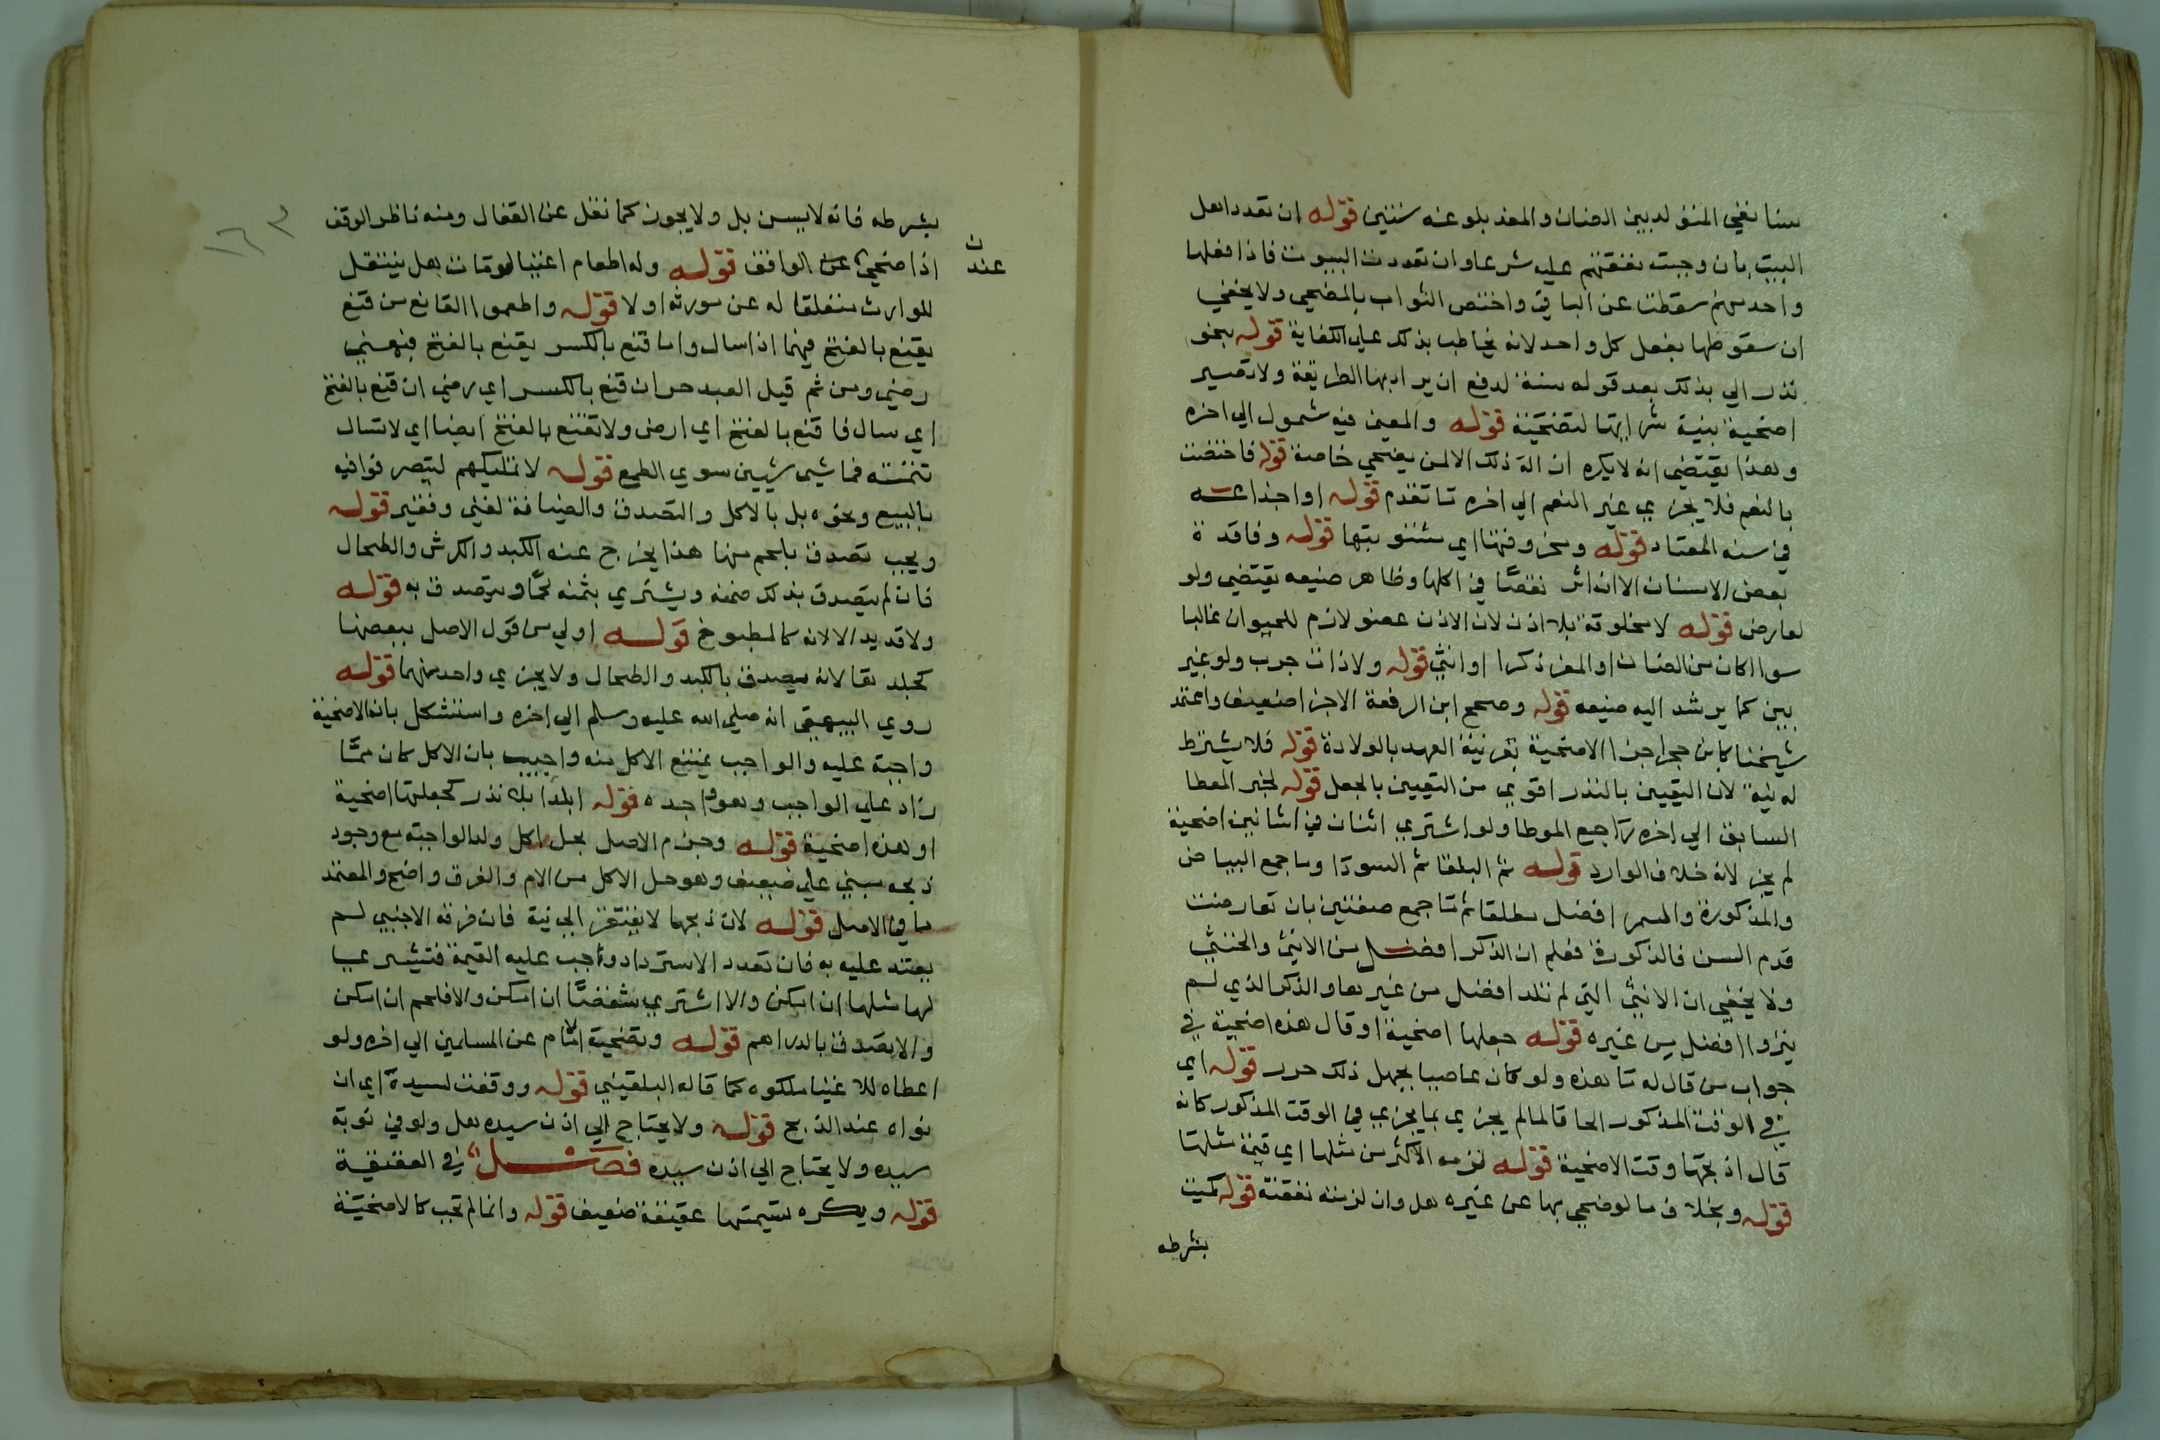 بينا نفي المتولد بين الضان والمعز بلوغه سنتين قوله ان تعدد اهل
البيت بان وجبت نفقتهم عليه شرعا وان تعددت البيوت فاذا فعلها
واحد منهم سقطت عن الباقي واختص الثواب بالمضحي ولا يخفي
ان سقوطها بفعل كل واحد لانه يخاطب بذلك علي الكفاية قوله بنحو
نذر الي بذلك بعد قوله سنة لدفع ان يراد بها الطريقة ولا تصير
اضحية بنية شرائها لتضحية قوله والمعين فيه شمول الي اخره
وهذا يقتضي انه لا يكره ازالة ذلك الا لمن يضحي خاصة قوله فاختصت
بالنعم فلا يجزي غير النعم الي اخره ما تقدم قوله او اجذاعه
في سنه المعتاد قوله ومحزوقتها اي مشقوقتها قوله وفاقدة
بعض الاسنان الا ان اثر نقصا في اكلها وظاهر صنيعه يقتضي ولو
لعارض قوله لا مخلوقة بلا اذن لان الاذن عضو لازم للحيوان غالبا
سوا اكان من الضان او المعز ذكرا او انثي قوله ولا ذات جرب ولو غير
بين كما يرشد اليه صنيعه قوله وصحح ابن الرفعة الاجزا ضعيف واعتمد
شيخنا كابن حجر اجزا الاضحية بقريبة العهد بالولادة قوله فلا يشترط
له نية لان التعيين بالنذر اقوي من التعيين بالجعل قوله لخبر الموطا
السابق الي اخره راجع الموطا ولو اشتري اثنان في اثنين اضحية
لم يجز لانه خلاف الوارد قوله ثم البلقا ثم السودا وما جمع البياض
والمذكورة والسمر افضل مطلقا ثم ما جمع صفتين بان تعارضت
قدم السن فالذكورة فعلم ان الذكر افضل من الانثي والخنثي
ولا يخفي ان الانثي التي لم تلد افضل من غيرها والذكر الذي لم
ينزوا افضل من غيره قوله جعلها اضحية او قال هذه اضحية في
جواب من قال له ما هذه ولو كان عاصيا بجهل ذلك حرر قوله اي
في الوقت المذكور الحاقا لما لم يجزي بما يجزي في الوقت المذكور كانه
قال اذبحها وقت الاضحية قوله لزمه الاكثر من مثلها اي قيمة مثلها
قوله وبخلاف ما لو ضحي بها عن غيره هل وان لزمته نفقته قوله كميت
بشرطه
بشرطه فانه لا يسن بل ولا يجوز كما نقل عن القفال ومنه ناظر الوقف
اذا ضحي عن الواقف قوله وله اطعام اغنيا لو مات هل ينتقل
ن
عند
للوارث متعلقا له عن مورثه او لا قوله واطعموا القانع من قنع
يقنع بالفتح فيهما اذا سال واما قنع بالكسر يقنع بالفتح فبمعني
رضي ومن ثم قيل العبد حر ان قنع بالكسر اي رضي ان قنع بالفتح
اي سال فاقنع بالفتح اي ارض ولا تقنع بالفتح ايضا اي لا تسال
تتمته فما شي يشين سوي الطمع قوله لا تمليكهم ليتصرفوا فيه
بالبيع ونحوه بل بالاكل والتصدق والضيافة لغني وفقير قوله
ويجب تصدق بلحم منها هذا يخرج عنه الكبد والكرش والطحال
فان لم يتصدق بذلك ضمنه ويشتري بثمنه لحما ويتصدق به قوله
ولا قديد الا لانه كالمطبوخ قوله اولي من قول الاصل ببعضها
كجلدها لانه يصدق بالكبد والطحال ولا يجزي واحد منهما قوله
روي البيهقي انه صلي الله عليه وسلم الي اخره واستشكل بان الاضحية
واجبة عليه والواجب يمتنع الاكل منه واجيب بان الاكل كان مما
زاد علي الواجب وهو واحده قوله ابلدا بلا نذر كجعلتها اضحية
او هذه اضحية قوله وجزم الاصل بحل اكل ولد الواجبة مع وجود
ذبحه مبني علي ضعيف وهو حل الاكل من الام والفرق واضح والمعتمد
ما في الاصل قوله لان ذبحها لا يفتقر الي نية فان فرقه الاجنبي لم
يعتد عليه به فان تعدد الاسترداد وأجب عليه القيمة فتشتري بها
لها مثلها ان امكن والا اشتري شقصا ان امكن والا فلحم ان امكن
والا تصدق بالدراهم قوله وتضحية الامام عن المسلمين الي اخره ولو
اعطاه للاغنيا ملكوه كما قاله البلقيني قوله ووقعت لسيده اي ان
نواه عند الذبح قوله ولا يحتاج الي اذن سيده هل ولو في نوبة
سيده ولا يحتاج الي اذن سيده فصل في العقيقة
قوله ويكره تسيمتها عقيقة ضعيف قوله وانما لم تجب كالاضحية